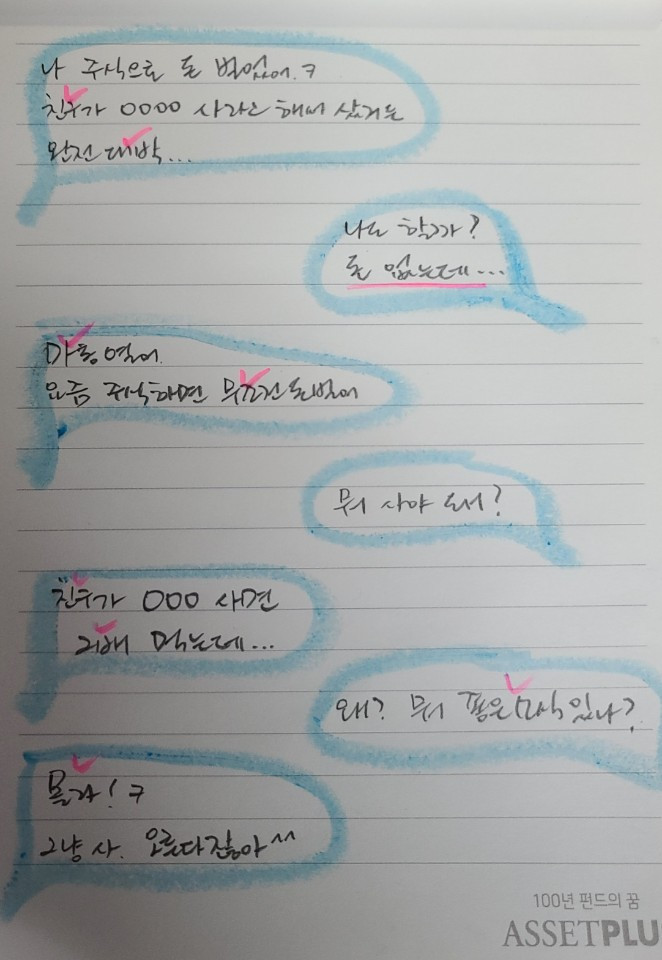 나 주식으로 돈 벌었어.ㅋ
친구가 OOOO 사라고 해서 샀거든
완전 대박...
나도 할까?
돈 없는데...
마통 열어.
요즘 주식하면 무조건 돈 벌어
뭐 사야 돼?
친구가 OOO 사면
먹는데...
왜? 뭐 좋은 소식 있나?
몰라!ㅋ
그냥 사. 오른다잖아^^
100년 펀드의 꿈
ASSETPLU